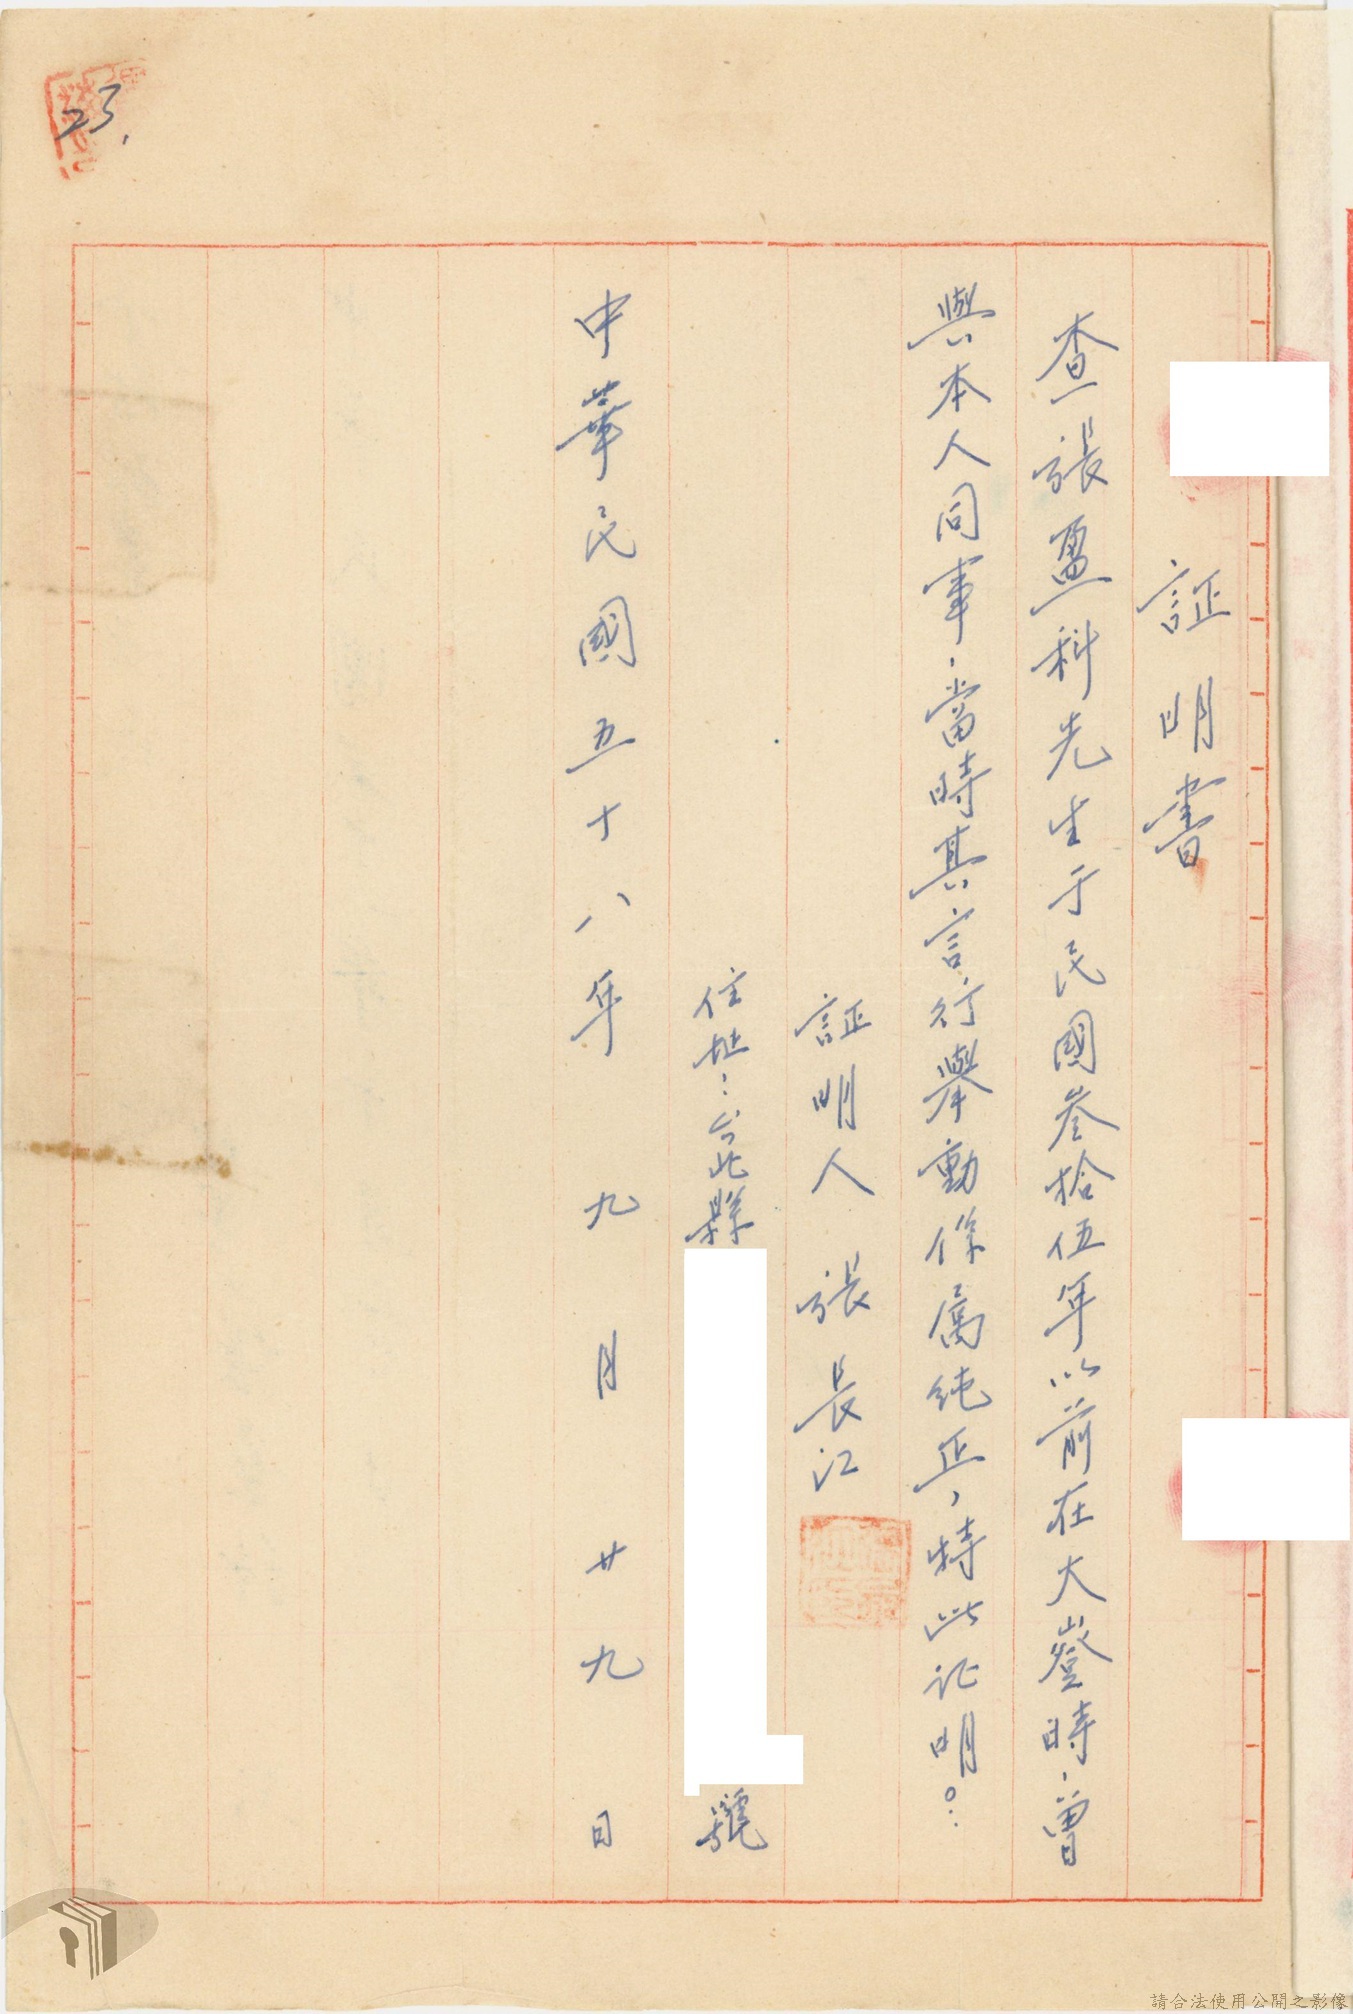 証明書
查張盈科先生于民國叁拾伍年以前在大嶝時，曾
與本人同事，當時其言行舉動係属純正，特此证明。
証明人 張長江
住址：台北縣
號
中華民國五十八年九月廿九日
23.
請合法使用公開之影像